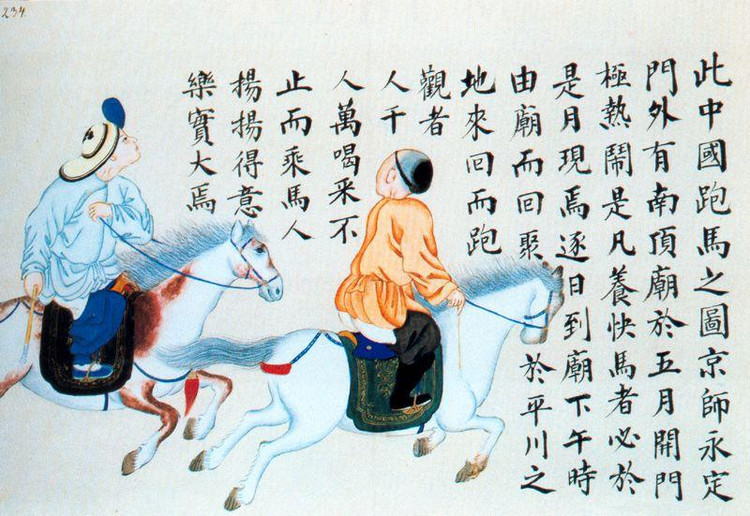 234
此中國跑馬之圖京師永定
門外有南頂廟於五月開門
極熱鬧是凡養快馬者必於
是月現焉逐日到廟下午時
由廟而回聚於平川之
地來回而跑
觀者
人千
人萬喝采不
止而乘馬人
揚揚得意
樂實大焉